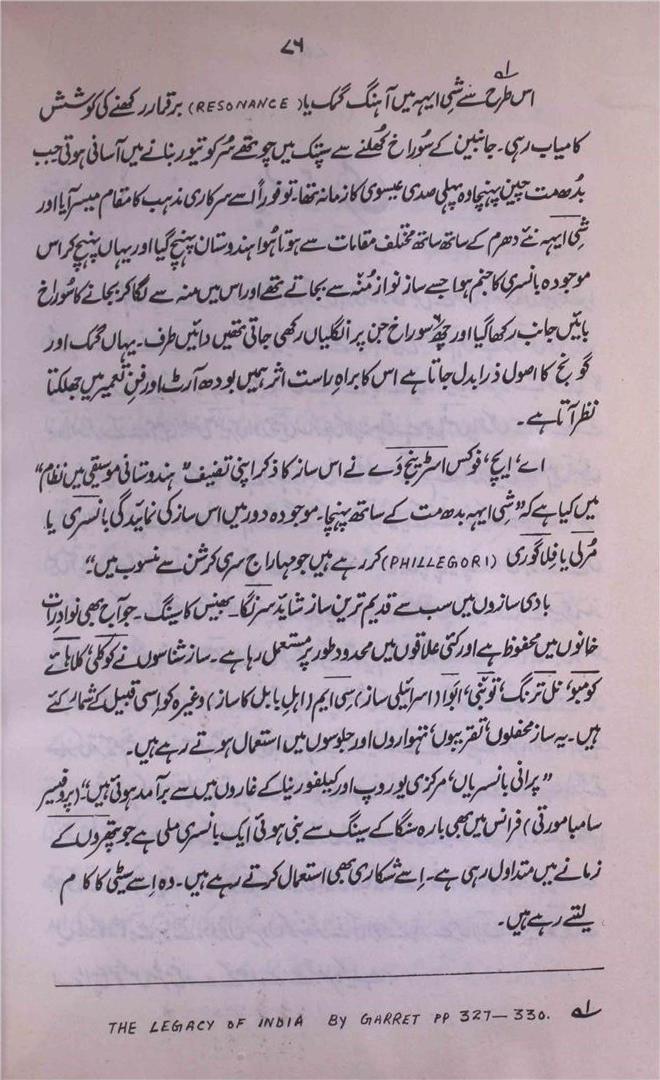 ۷۶
اس طرح سے شی ایہہ میں آہنگ گمک یا (RESONANCE) برقرار رکھنے کی کوشش ۱ے
کامیاب رہی۔ جانبین کے سُوراخ کُھلنے سے سپتک میں چوتھے سُر کو تیور بنانے میں آسانی ہوتی جب
بُدھ مت چین پہنچا وہ پہلی صدی عیسوی کا زمانہ تھا۔ تو فوراً اسے سرکاری مذہب کا مقام میسر آیا اور
شِی ایہہ نئے دھرم کے ساتھ ساتھ مختلف مقامات سے ہوتا ہُوا ہندوستان پہنچ گیا اور یہاں پہنچ کر اس
موجودہ بانسری کا جنم ہوا جسے ساز نواز مُنہ سے بجاتے تھے اور اس میں منہ سے لگا کر بجانے کا سُوراخ
بائیں جانب رکھا گیا اور چھ سُوراخ جن پر اُنگلیاں رکھی جاتی تھیں دائیں طرف۔ یہاں گمک اور
گونج کا اصول ذرا بدل جاتا ہے اس کا براہِ راست اثر ہمیں بودھ آرٹ اور فنِ تعمیر میں جھلکتا
نظر آتا ہے۔
اے، ایچ، فوکس اسٹرینج وَے نے اس ساز کا ذکر اپنی تصنیف "ہندوستانی موسیقی میں نظام"
میں کیا ہے کہ "شِی ایہہ بدھ مت کے ساتھ پہنچا۔ موجودہ دور میں اس ساز کی نمائیندگی بانسری یا
مُرلی یا فِلاگوری (PHILLEGORI) کر رہے ہیں جو مہاراج سری کرشن سے منسوب ہیں"۔
بادی سازوں میں سب سے قدیم ترین ساز شاید سرنگا۔ بھینس کا سینگ۔ جو آج بھی نوادرات
خانوں میں محفوظ ہے اور کئی علاقوں میں محدود طور پر مستعمل رہا ہے۔ ساز شناسوں نے کوکلی، کلاہائے
کومبو، نل ترنگ، توتئی، اَبوا (اسرائیلی ساز) سِی ایم (اہلِ بابل کا ساز) وغیرہ کو اِسی قبیل کے شمار کئے
ہیں۔ یہ ساز محفلوں، تقریبوں، تہواروں اور جلوسوں میں استعمال ہوتے رہے ہیں۔
"پرانی بانسریاں، مرکزی یوروپ اور کیلیفورنیا کے غاروں میں سے برآمد ہوتی ہیں"۔ (پروفیسر
سامبا مورتی) فرانس میں بھی بارہ سنگا کے سینگ سے بنی ہوئی ایک بانسری ملی ہے جو پتھروں کے
زمانے میں متداول رہی ہے۔ اِسے شکاری بھی استعمال کرتے رہے ہیں۔ وہ اِسے سیٹی کا کام
لیتے رہے ہیں۔
۱ے THE LEGACY OF INDIA BY GARRET PP 327—330.